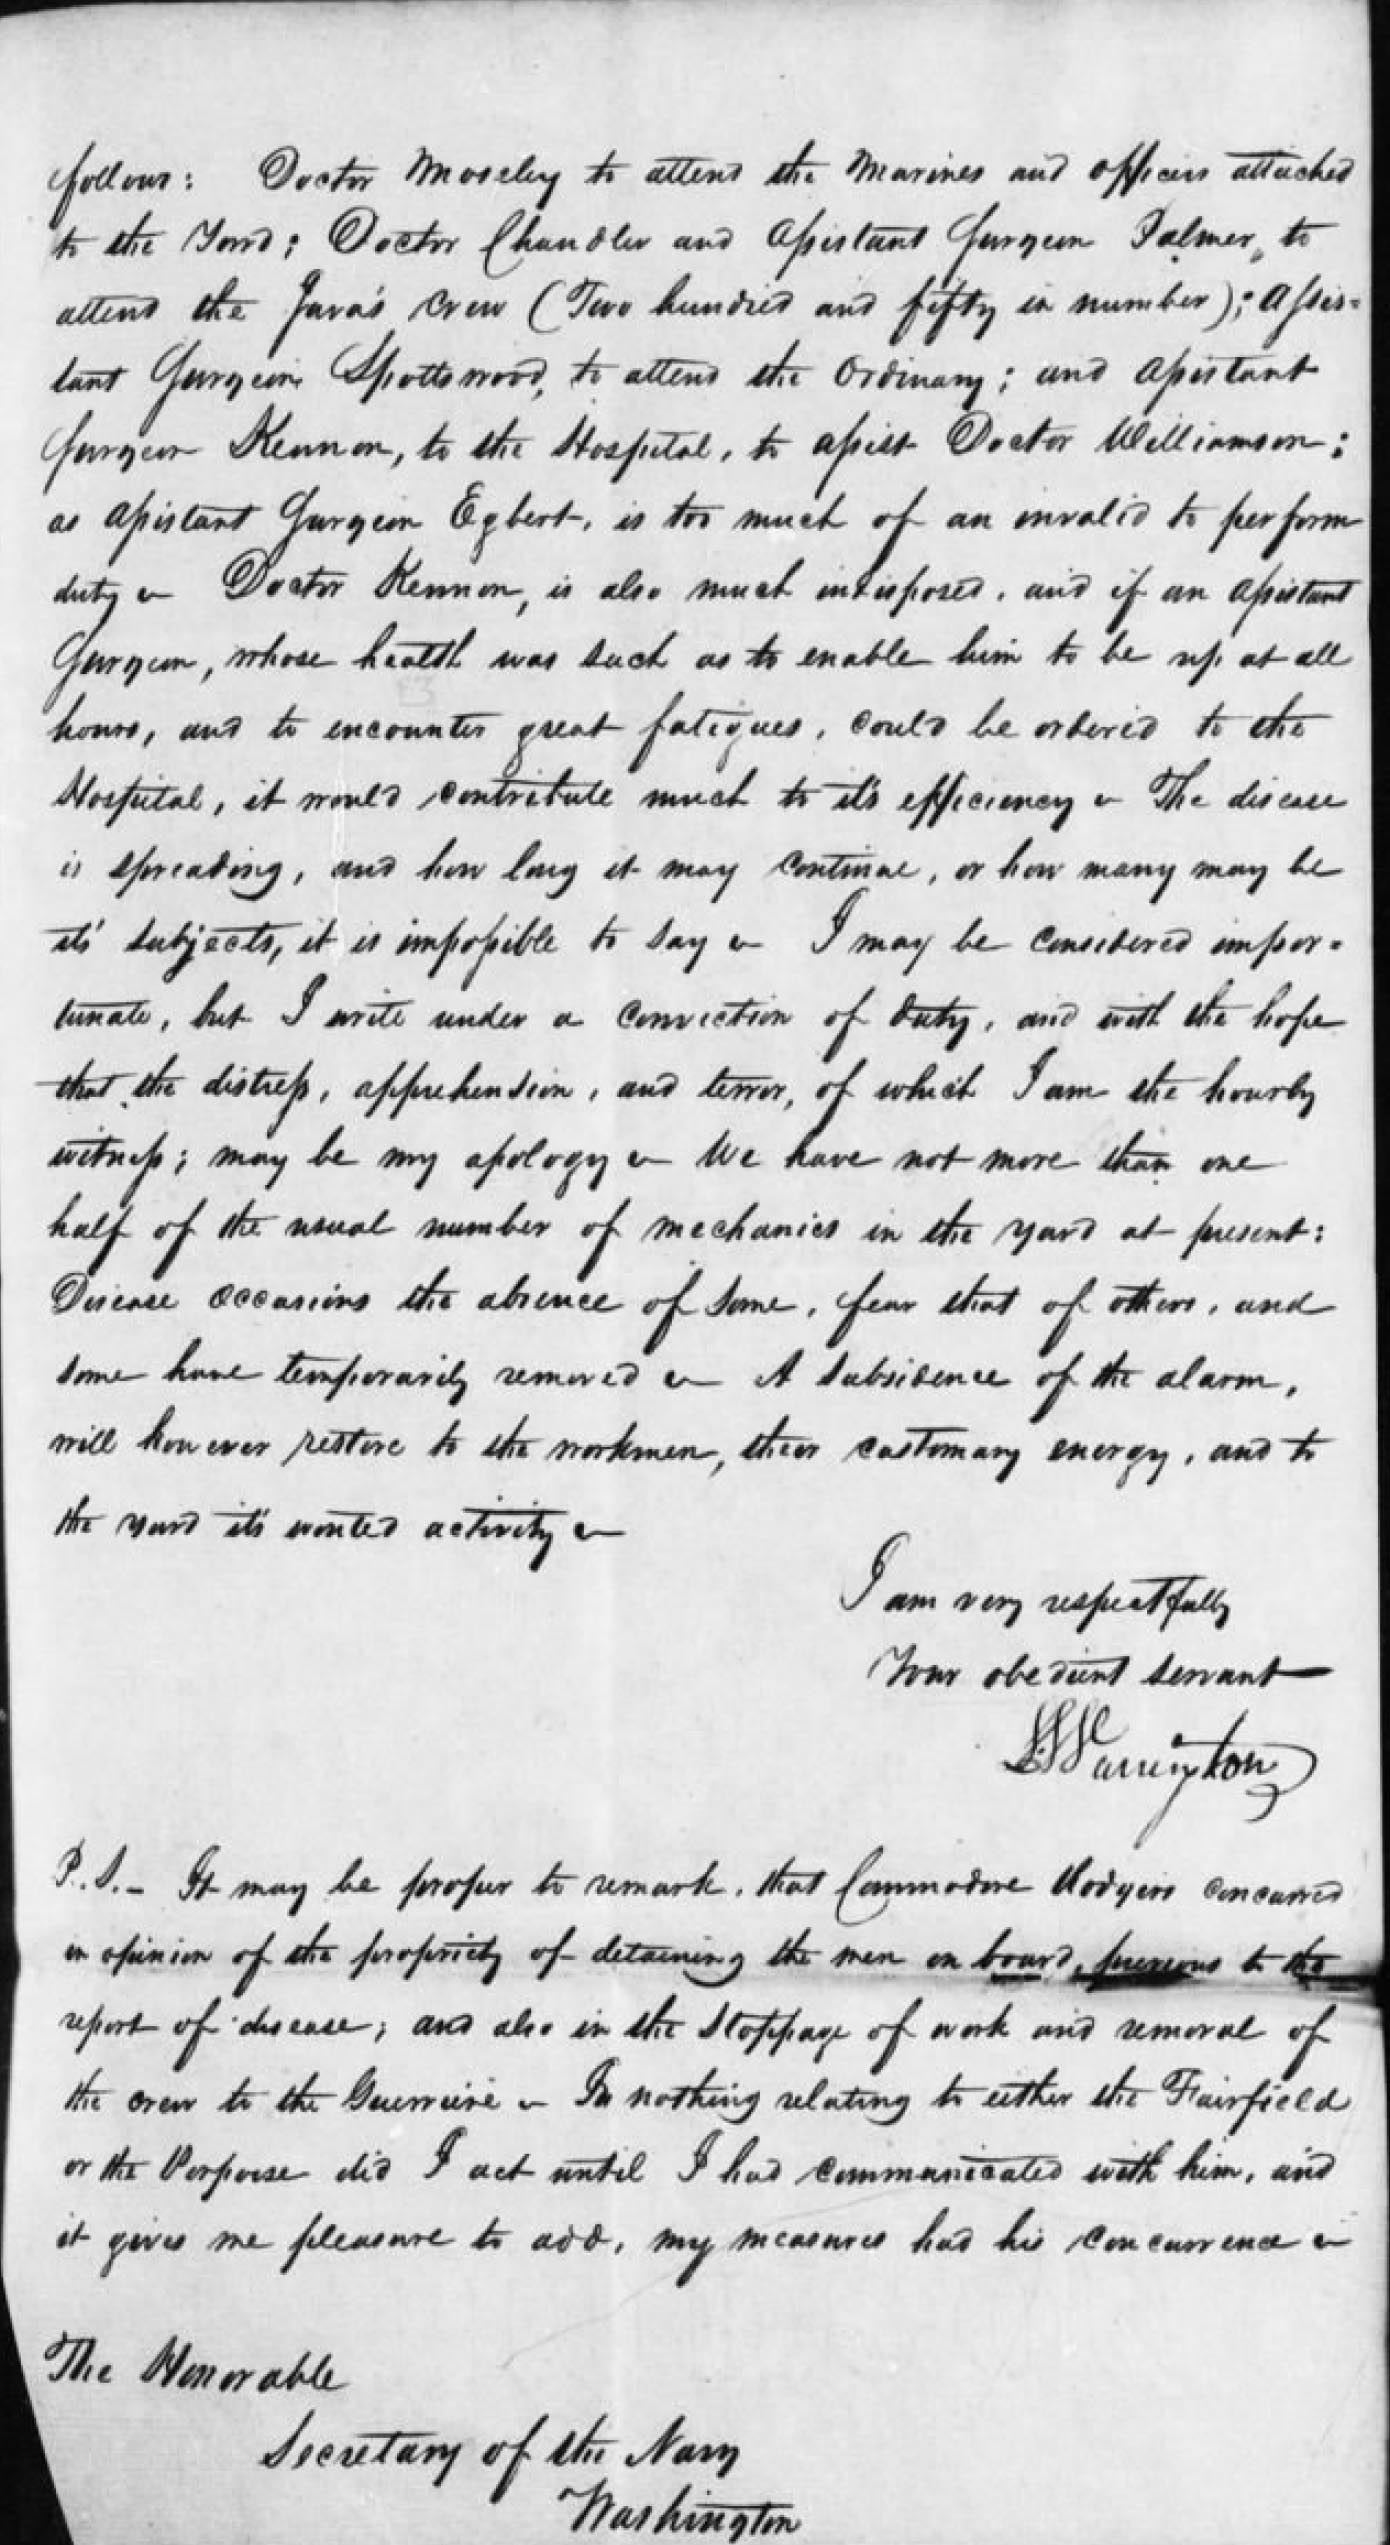 follows: Doctor Moseley to attend the Marines and officers attached
to the Yard; Doctor Chandler and Assistant Surgeon Palmer, to
attend the Java's crew (Two hundred and fifty in number); Assis=
tant Surgeon Spottswood, to attend the Ordinary; and Assistant
Surgeon Kennon, to the Hospital, to assist Doctor Williamson;
as Assistant Surgeon Egbert, is too much of an invalid to perform
duty ~ Doctor Kennon, is also much indisposed, and if an Assistant
Surgeon, whose health was such as to enable him to be up at all
hours, and to encounter great fatigues, could be ordered to the
Hospital, it would contribute much to it's efficiency ~ The disease
is spreading, and how long it may continue, or how many may be
its' subjects, it is impossible to say ~ I may be considered impor=
tunate, but I write under a conviction of duty, and with the hope
that the distress, apprehension, and terror, of which I am the hourly
witness; may be my apology ~ We have not more than one
half of the usual number of mechanics in the yard at present:
Disease occasions the absence of some, fear that of others, and
some have temporarily removed ~ A subsidence of the alarm,
will however restore to the workmen, their customary energy, and to
the yard it's wonted activity ~
I am very respectfully
Your obedient servant
L. Warrington
P.S. - It may be proper to remark, that Commodore Rodgers concurred
in opinion of the propriety of detaining the men on board, previous to the
report of disease; and also in the stoppage of work and removal of
the crew to the Guerriere ~ In nothing relating to either the Fairfield
or the Porpoise did I act until I had communicated with him, and
it gives me pleasure to add, my measures had his concurrence ~
The Honorable
Secretary of the Navy
Washington